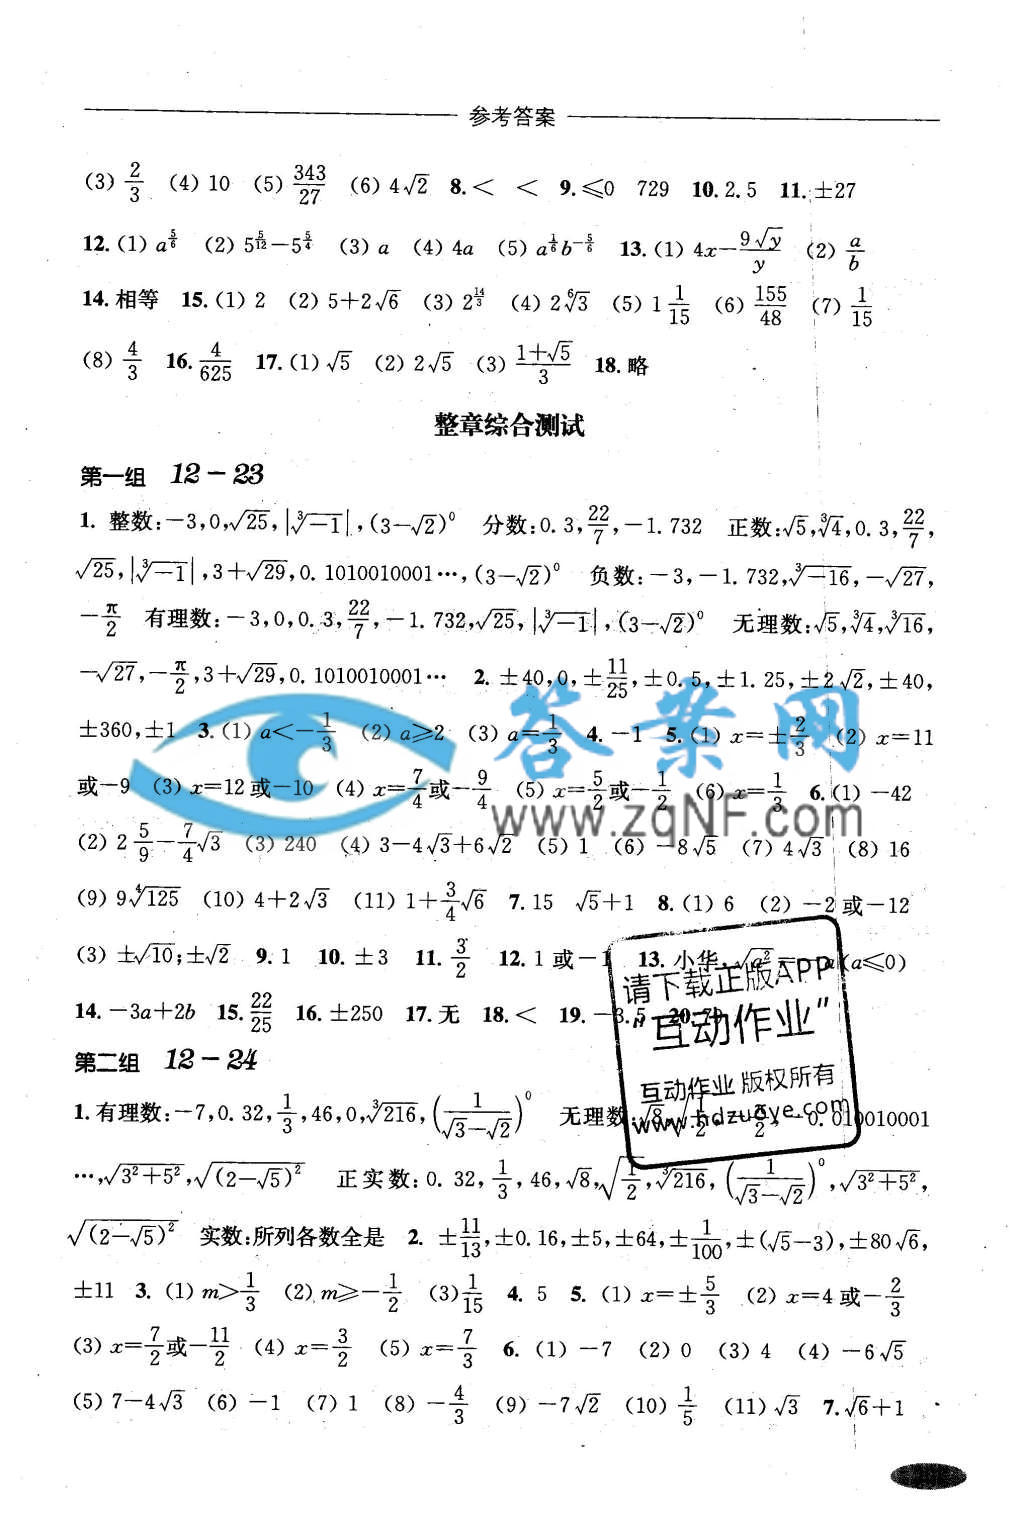 参考答案
(3) 2/3 (4) 10 (5) 343/27 (6) 4√2 8.< < 9.≤0 729 10. 2.5 11. ±27
12. (1) a^(5/6) (2) 5^(5/12)－5^(5/4) (3) a (4) 4a (5) a^(1/6)b^(-5/6) 13. (1) 4x－9√y/y (2) a/b
14. 相等 15. (1) 2 (2) 5+2√6 (3) 2^(14/3) (4) 2⁶√3 (5) 1 1/15 (6) 155/48 (7) 1/15
(8) 4/3 16. 4/625 17. (1) √5 (2) 2√5 (3) (1+√5)/3 18. 略
整章综合测试
第一组 12－23
1. 整数:－3,0,√25,|³√－1|,(3－√2)⁰ 分数:0.3,22/7,－1.732 正数:√5,³√4,0.3,22/7,
√25,|³√－1|,3+√29,0.1010010001…,(3－√2)⁰ 负数:－3,－1.732,³√－16,－√27,
－π/2 有理数:－3,0,0.3,22/7,－1.732,√25,|³√－1|,(3－√2)⁰ 无理数:√5,³√4,³√16,
－√27,－π/2,3+√29,0.1010010001… 2. ±40,0,±11/25,±0.5,±1.25,±2√2,±40,
±360,±1 3. (1) a<－1/3 (2) a≥2 (3) a=1/3 4. －1 5. (1) x=±2/3 (2) x=11
或－9 (3) x=12或－10 (4) x=7/4或－9/4 (5) x=5/2或－1/2 (6) x=1/3 6. (1) －42
(2) 2 5/9－7/4√3 (3) 240 (4) 3－4√3+6√2 (5) 1 (6) －8√5 (7) 4√3 (8) 16
(9) 9⁴√125 (10) 4+2√3 (11) 1+3/4√6 7. 15 √5+1 8. (1) 6 (2) －2或－12
(3) ±√10;±√2 9. 1 10. ±3 11. 3/2 12. 1或－1 13. 小华, √a²=－a(a≤0)
14. －3a+2b 15. 22/25 16. ±250 17. 无 18. < 19. －3.5 20.
第二组 12－24
1. 有理数:－7,0.32,1/3,46,0,³√216,(1/(√3－√2))⁰ 无理数:√8,√(1/2),－0.010010001
…,√(3²+5²),√((2－√5)²) 正实数:0.32,1/3,46,√8,√(1/2),³√216,(1/(√3－√2))⁰,√(3²+5²),
√((2－√5)²) 实数:所列各数全是 2. ±11/13,±0.16,±5,±64,±1/100,±(√5－3),±80√6,
±11 3. (1) m>1/3 (2) m≥－1/2 (3) 1/15 4. 5 5. (1) x=±5/3 (2) x=4或－2/3
(3) x=7/2或－11/2 (4) x=3/2 (5) x=7/3 6. (1) －7 (2) 0 (3) 4 (4) －6√5
(5) 7－4√3 (6) －1 (7) 1 (8) －4/3 (9) －7√2 (10) 1/5 (11) √3 7. √6+1
答案网
www.zqNF.com
请下载正版APP
"互动作业"
互动作业 版权所有
www.hdzuoye.com